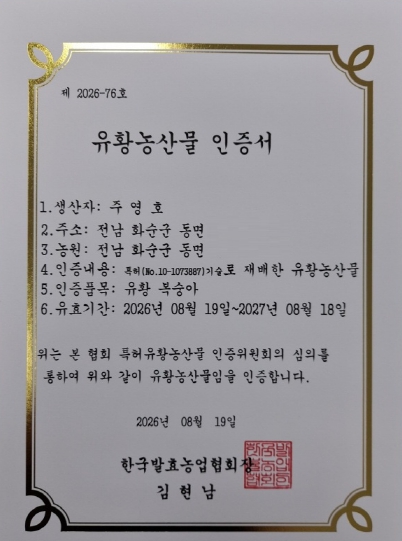 제 2026-76호
유황농산물 인증서
1.생산자: 주 영 호
2.주소: 전남 화순군 동면
3.농원: 전남 화순군 동면
4.인증내용: 특허(No.10-1073887)기술로 재배한 유황농산물
5.인증품목: 유황 복숭아
6.유효기간: 2026년 08월 19일~2027년 08월 18일
위는 본 협회 특허유황농산물 인증위원회의 심의를
통하여 위와 같이 유황농산물임을 인증합니다.
2026년 08월 19일
한국발효농업협회장
김 현 남